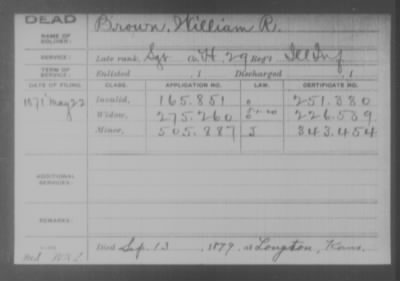 DEAD
Brown, William R.
NAME OF SOLDIER:
SERVICE: Late rank, Sgt Co. H, 29 Reg't Ill Inf
TERM OF SERVICE: Enlisted , 1 Discharged , 1
DATE OF FILING. CLASS. APPLICATION NO. LAW. CERTIFICATE NO.
1871 May 22 Invalid, 165.851 251.380
Widow, 275.260 226.539
Minor, 505.887 343.454
ADDITIONAL SERVICES:
REMARKS:
Died Sep. 13, 1879, at Longton, Kans.